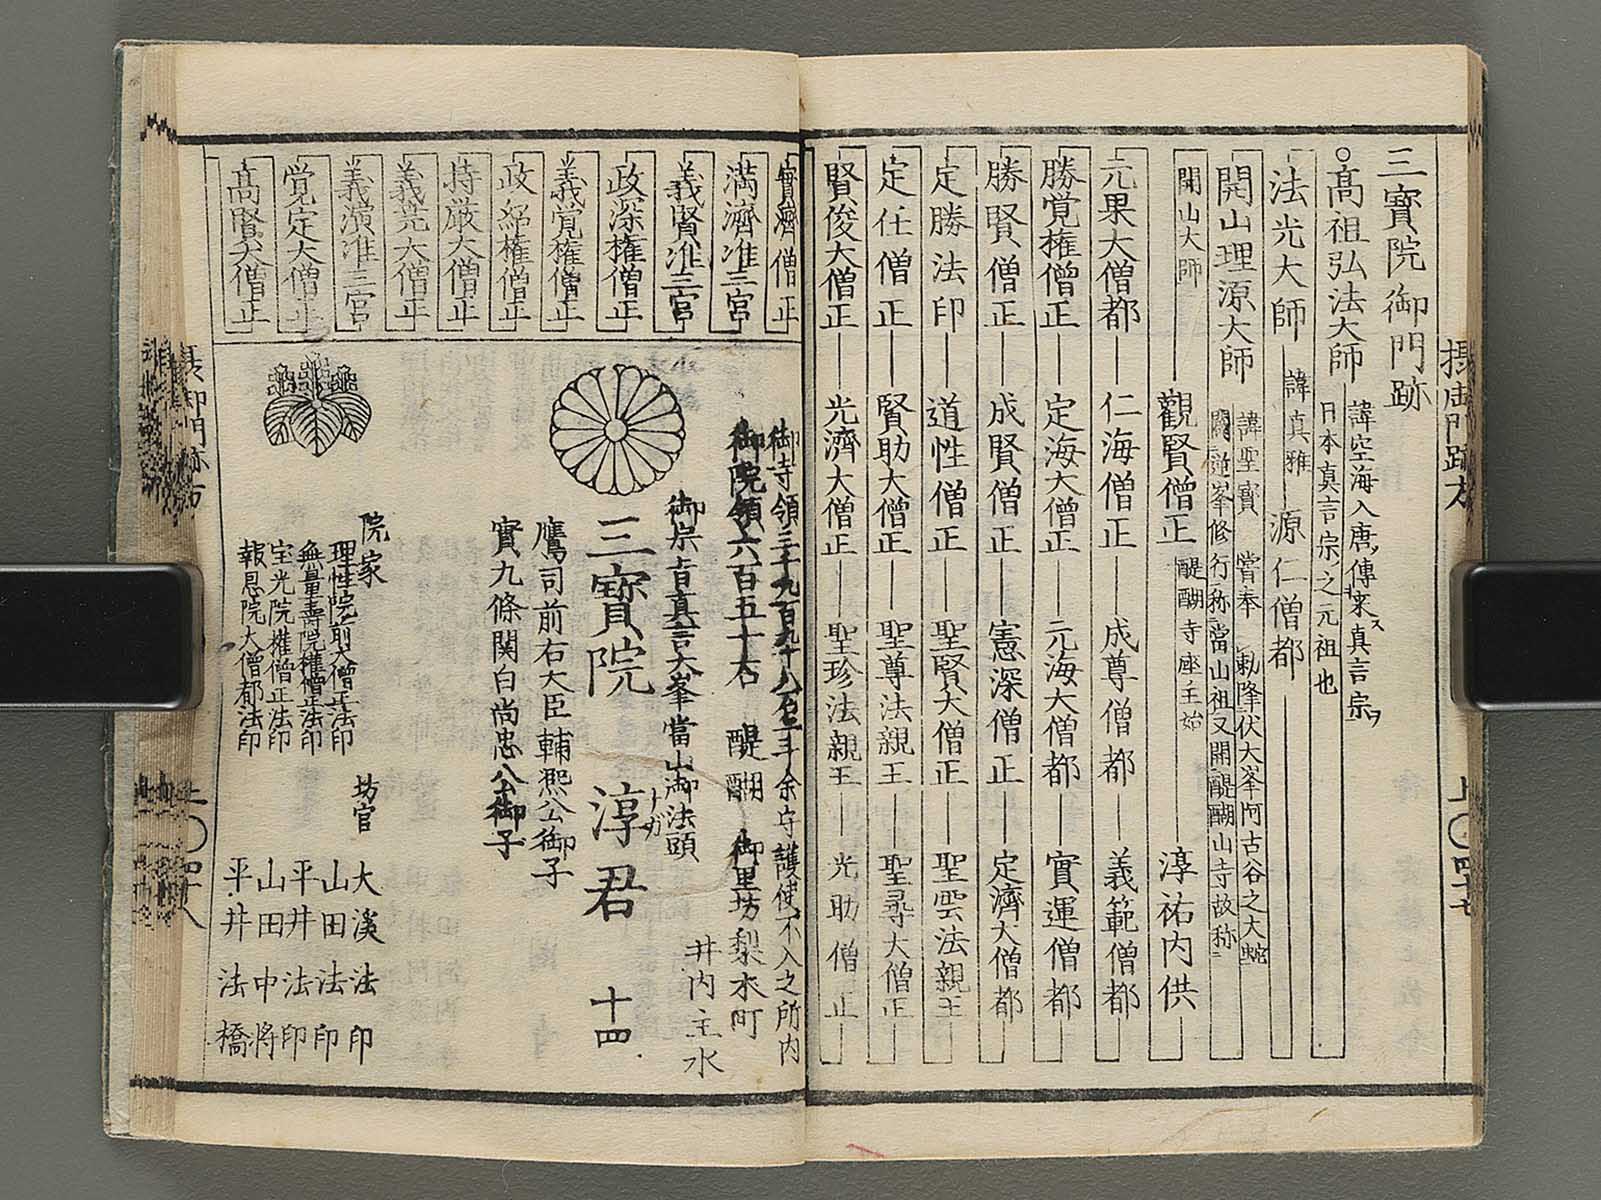 三寶院御門跡
高祖弘法大師
諱空海入唐傳来ス真言宗ヲ
日本真言宗之元祖也
法光大師
諱真雅
源仁僧都
開山理源大師
諱聖寳 嘗奉勅降伏大峯阿古谷之大蛇
開逆峯修行称當山祖又開醍醐山寺故称
開山大師
觀賢僧正
醍醐寺座主始
淳祐内供
元果大僧都
仁海僧正
成尊僧都
義範僧都
勝覚権僧正
定海大僧正
元海大僧都
實運僧都
勝賢僧正
成賢僧正
憲深僧正
定濟大僧都
定勝法印
道性僧正
聖賢大僧正
聖雲法親王
定任僧正
賢助大僧正
聖尊法親王
聖尋大僧正
賢俊大僧正
光濟大僧正
聖珍法親王
光助僧正
摂御門跡方
上〇四十七
實濟僧正
満濟准三宮
義賢准三宮
政深権僧正
義覚権僧正
政紹権僧正
持厳大僧正
義堯大僧正
義演准三宮
覚定大僧正
高賢大僧正
御寺領三千九百九十八石三斗余守護使不入之所内
御院領六百五十石 醍醐 御里坊梨木町
井内主水
御宗旨真言大峯當山御法頭
三寳院 淳君 十四
トガ
鷹司前右大臣輔煕公御子
實九條関白尚忠公御子
院家
理性院前大僧正法印
無量壽院権僧正法印
宝光院権僧正法印
報恩院大僧都法印
坊官
大溪法印
山田法印
平井法印
山田中将
平井法橋